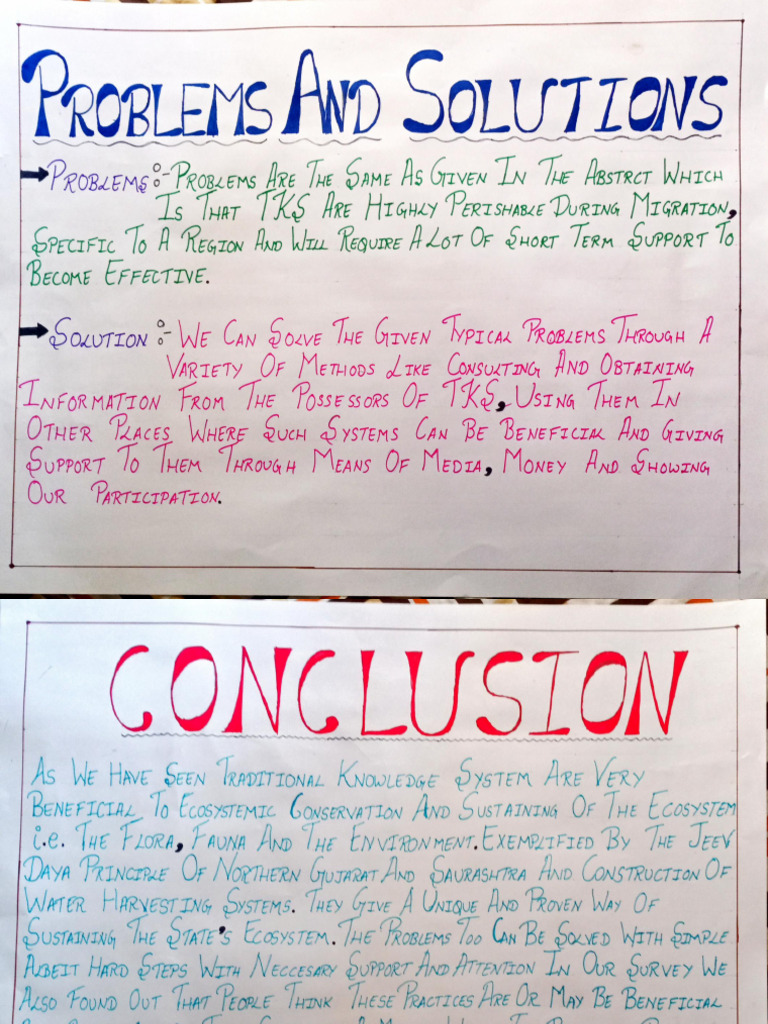 PROBLEMS AND SOLUTIONS
→PROBLEMS:-PROBLEMS ARE THE SAME AS GIVEN IN THE ABSTRCT WHICH
IS THAT TKS ARE HIGHLY PERISHABLE DURING MIGRATION,
SPECIFIC TO A REGION AND WILL REQUIRE A LOT OF SHORT TERM SUPPORT TO
BECOME EFFECTIVE.
→SOLUTION:- WE CAN SOLVE THE GIVEN TYPICAL PROBLEMS THROUGH A
VARIETY OF METHODS LIKE CONSULTING AND OBTAINING
INFORMATION FROM THE POSSESSORS OF TKS, USING THEM IN
OTHER PLACES WHERE SUCH SYSTEMS CAN BE BENEFICIAL AND GIVING
SUPPORT TO THEM THROUGH MEANS OF MEDIA, MONEY AND SHOWING
OUR PARTICIPATION.
CONCLUSION
AS WE HAVE SEEN TRADITIONAL KNOWLEDGE SYSTEM ARE VERY
BENEFICIAL TO ECOSYSTEMIC CONSERVATION AND SUSTAINING OF THE ECOSYSTEM
i.e. THE FLORA, FAUNA AND THE ENVIRONMENT. EXEMPLIFIED BY THE JEEV
DAYA PRINCIPLE OF NORTHERN GUJARAT AND SAURASHTRA AND CONSTRUCTION OF
WATER HARVESTING SYSTEMS. THEY GIVE A UNIQUE AND PROVEN WAY OF
SUSTAINING THE STATE'S ECOSYSTEM. THE PROBLEMS TOO CAN BE SOLVED WITH SIMPLE
ALBEIT HARD STEPS WITH NECCESARY SUPPORT AND ATTENTION IN OUR SURVEY WE
ALSO FOUND OUT THAT PEOPLE THINK THESE PRACTICES ARE OR MAY BE BENEFICIAL